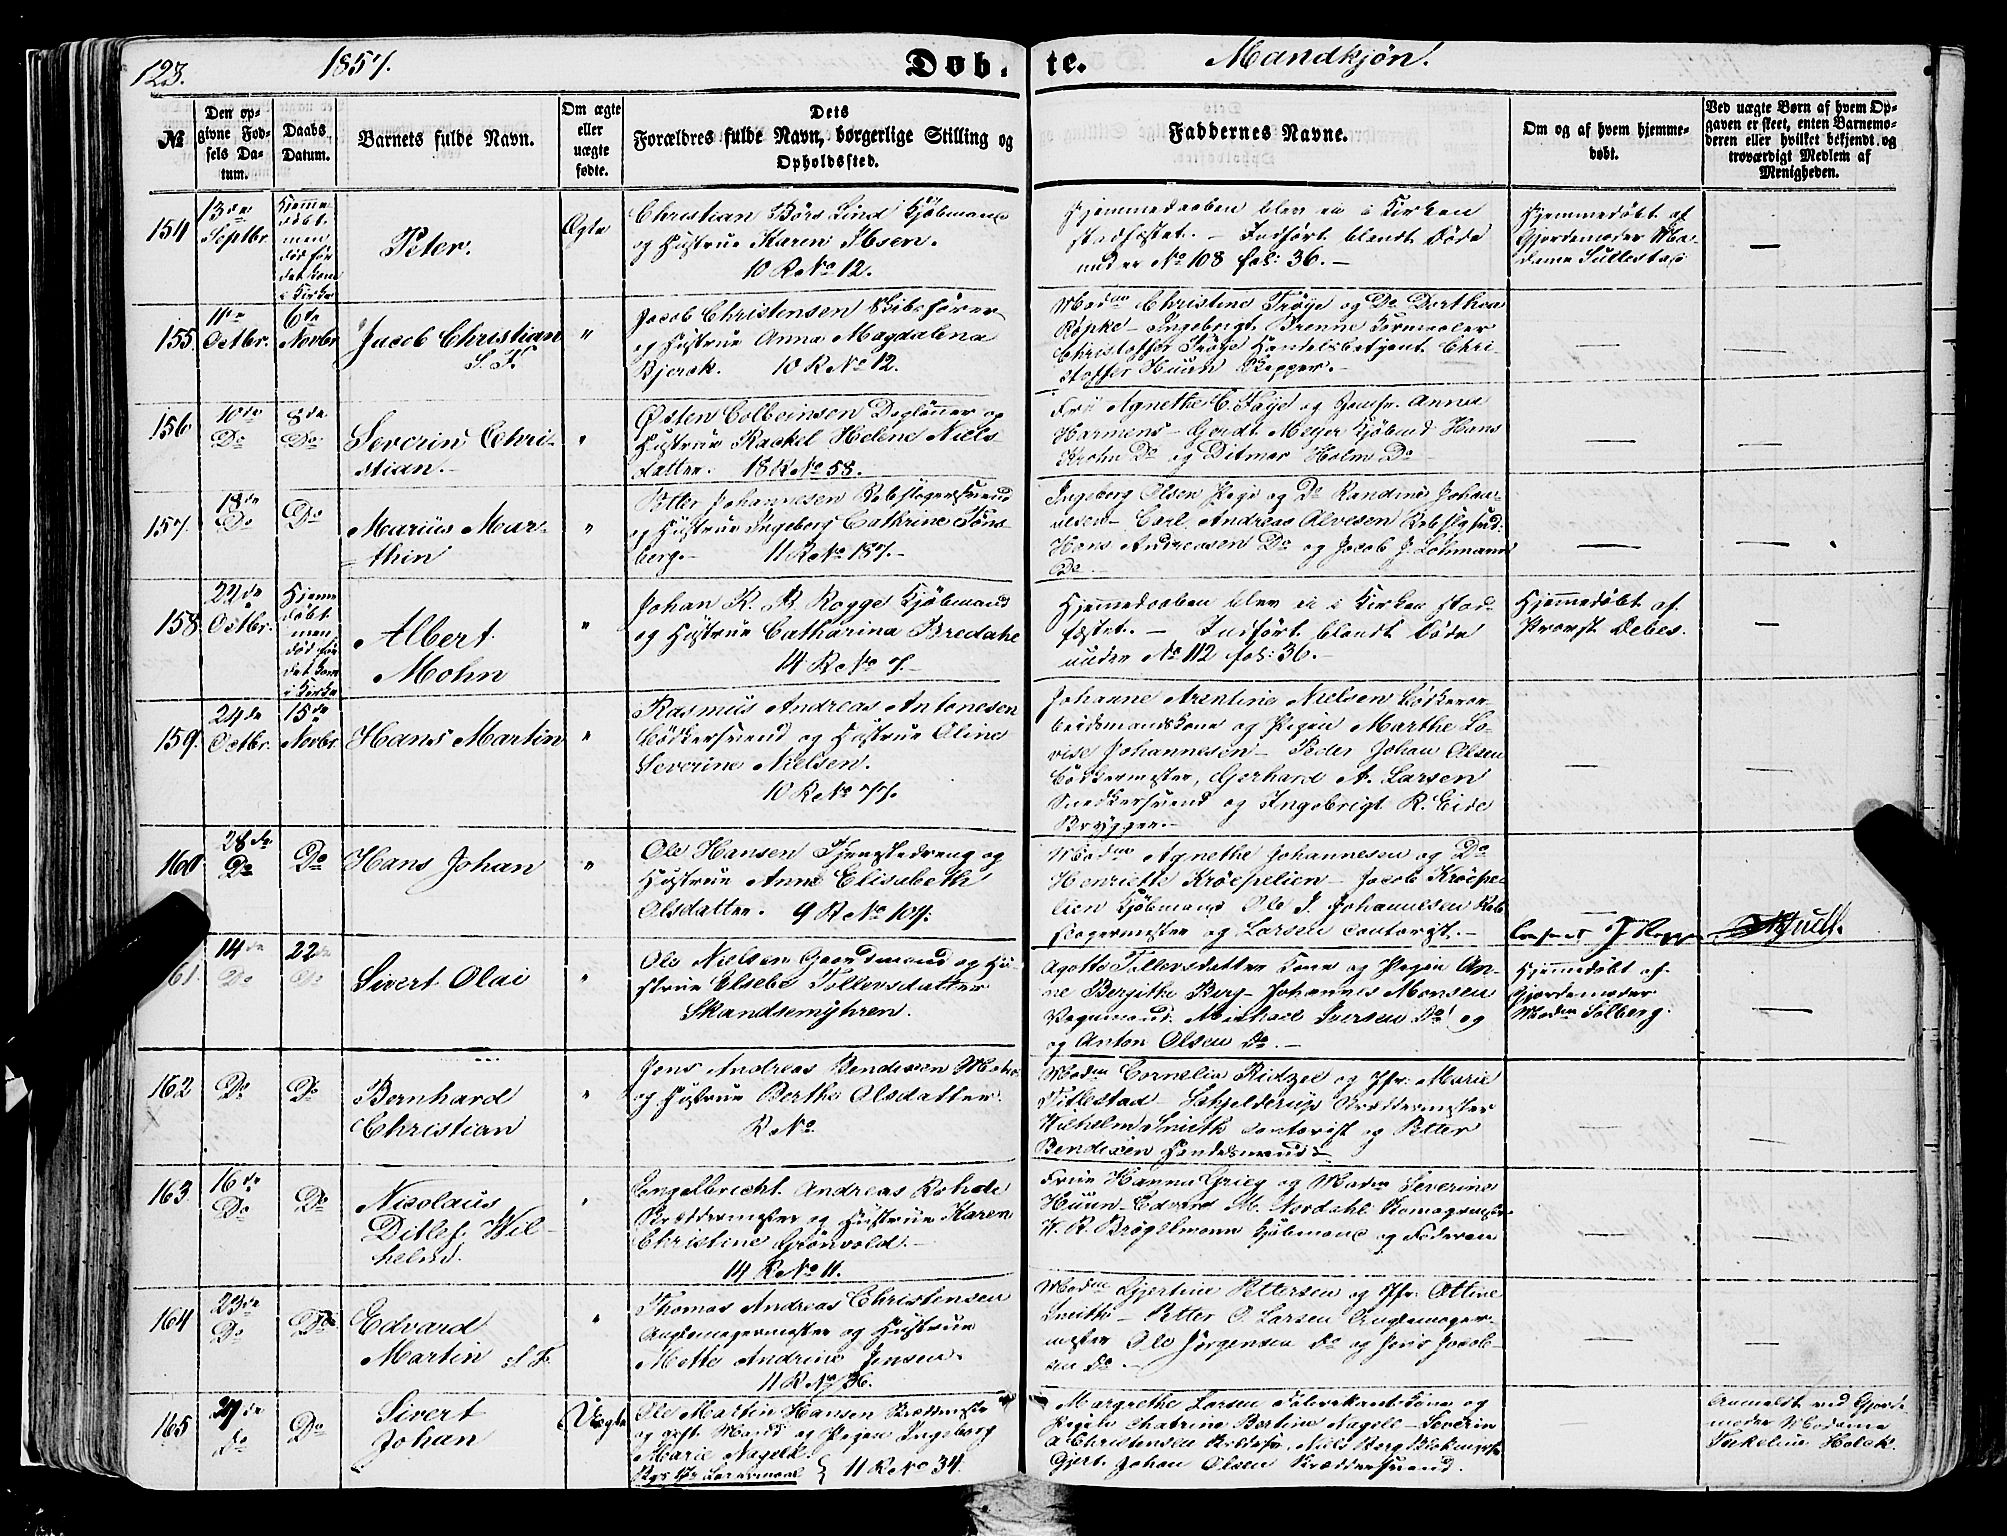 123.
1857.
Døb-
te.
Mandkjøn.
№
Den op-
givne Fød-
sels Da-
tum.
Daabs
Datum.
Barnets fulde Navn.
Om ægte
eller
uægte
fødte.
Dets
Forældres fulde Navn, borgerlige Stilling og
Opholdssted.
Faddernes Navne.
Om og af hvem hjemme-
døbt.
Ved uægte Børn af hvem Op-
gaven er skeet, enten Barnemo-
deren eller hvilket bekjendt og
troværdigt Medlem af
Menigheden.
154
13de
Septbr.
Hjemme
døbt
men
død før
det kom
i Kirke
Peter.
Ægte
Christian Børs Lind Kjøbmand
og Hustrue Karen Ibsen.
10 R No 12.
Hjemmedaaben blev ei i Kirken
stadfæstet. — Indført blandt Døde
under No 108 fol: 36. —
Hjemmedøbt af
Gjordemoder Ma-
dame
—
155.
Octbr.
6te
Novbr
Jacob Christian
S. T.
"
Jacob Christensen Skibsfører
og Hustrue Anna Magdalena
Bjerck. 10 R No 12.
Madm Christine Trøye og Do Dorthea
Røpke — Ingebrigt Brenne
Christoffer Trøye Handelsbetjent Chri-
stoffer Huun Skipper. —
—
—
156
10de
Do
8de
Do
Severin Chri-
stian.
"
Østen Colbeinsen Daglønner og
Hustrue Rachel Helene Niels
datter. 18 R No 58.
Fru Agnethe C. Faye og Jomfr. Anna
Harmens — Gerdt Meyer Kjøbmd Hans
Krohn Do og Ditmar Holm Do
—
—
157.
18de
Do
Do
Marius Mar-
thin
"
Peter Johannesen Rebslagersvend
og Hustrue Ingeborg Cathrine Tøns-
berg. — 11 R No 187. —
Ingeborg Olsen Pige og Do Randine Johan-
nesen — Carl Andreas Alvesen Rebslgsvd:
Hans Andreasen Do og Jacob J. Lohmann
Do. —
—
—
158.
22de
Octbr.
Hjemme
døbt
men
død før
det kom
i Kirke
Albert
Mohn
"
Johan K. R. Rogge Kjøbmand
og Hustrue Catharina Bredahl
14 R No 7. —
Hjemmedaaben blev ei i Kirken stad-
fæstet. — Indført blandt Døde
under No 112 fol: 36. —
Hjemmedøbt af
Provst Debes.
—
159.
24de
Octbr.
15de
Novbr.
Hans Martin
"
Rasmus Andreas Antonesen
Bødkersvend og Hustrue Oline
Severine Nielsen.
10 R No 77.
Johanne Arentine Nielsen Bødkerar-
beidsmandskone og Pigen Marthe Lo-
vise Johannesen — Peder Johan Olsen
Bødkermester, Gjerhard A. Larsen
Snedkersvend og Ingebrigt R. Eide
Brygger. —
—
—
160
28de
Do
Do
Hans Johan
"
Ole Hansen Tjenestedreng og
Hustrue Anne Elisabeth
Olsdatter. 9 R No 107.
Madm Agnethe Johannesen og Do
Henriette Krøepelien — Jacob Krøepe-
lien Kjøbmand Ole J. Johannesen Reb-
slagermester og Larsen Contorist. —
—
61.
14de
Do
22de
Do
Sivert Olai
"
Ole Nielsen Grundmand og Hu-
strue Elsebe Tollevsdatter
Skandsemyhren.
Agethe Tillersdatter Kone og Pigen An-
ne Bergithe Berg — Johannes Monsen
Vognmand Michael Iversen Do og
og Anton Olsen Do. —
Hjemmedøbt af
Gjordemoder
Madm Solberg.
—
162
Do
Do
Bernhard
Christian
"
Jens Andreas Bendixen
og Hustrue Berthe Olsdatter.
R No.
Madm Cornelia Ridzee og Jfr: Marie
Titlestad — Schjelderup Skræddermester
Wilhelm Smith Contorist og Petter
Bendixen Handelsmand —
—
—
163
16de
Do
Do
Nicolaus
Ditlef Wil-
helm.
"
Engelbrecht Andreas Rohde
Skræddermester og Hustrue Karen
Christine Grønvold. —
14 R No 11.
Frue Hanna Grieg og Madm Severine
Huun — Edvard M. Nordahl
W. R. Brøgelmann Kjøbmand og Faderen
—
—
164
23de
Do
Do
Edvard
Martin S T.
"
Thomas Andreas Christensen
og Hustrue
Mette Andrine Jensen.
11 R No 36.
Madm Gjertine Pettersen og Jfr: Oline
Smith — Petter O. Larsen
mester Ole Jørgensen Do og Jens Jacob-
sen Do. —
—
—
165
27de
Do
Do
Sivert
Johan
Uægte
Ole Martin Hansen
og gift Mand og Pigen Ingeborg
Marie Nagell.
11 R No 34.
Margrethe Larsen Fabrikant Kone og
Pigen Cathrine Bertine Nagell — Severin
A Christensen Niels Berg
Gjert Johan Olsen Skræddersvend.
—
Anmeldt ved Gjorde
moder Madame
Holck.